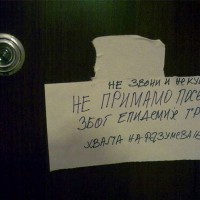 НЕ ЗВОНИ И НЕ КУ
НЕ ПРИМАМО ПОСЕ
ЗБОГ ЕПИДЕМИЈЕ ГР
ХВАЛА НА РАЗУМЕВАЊ